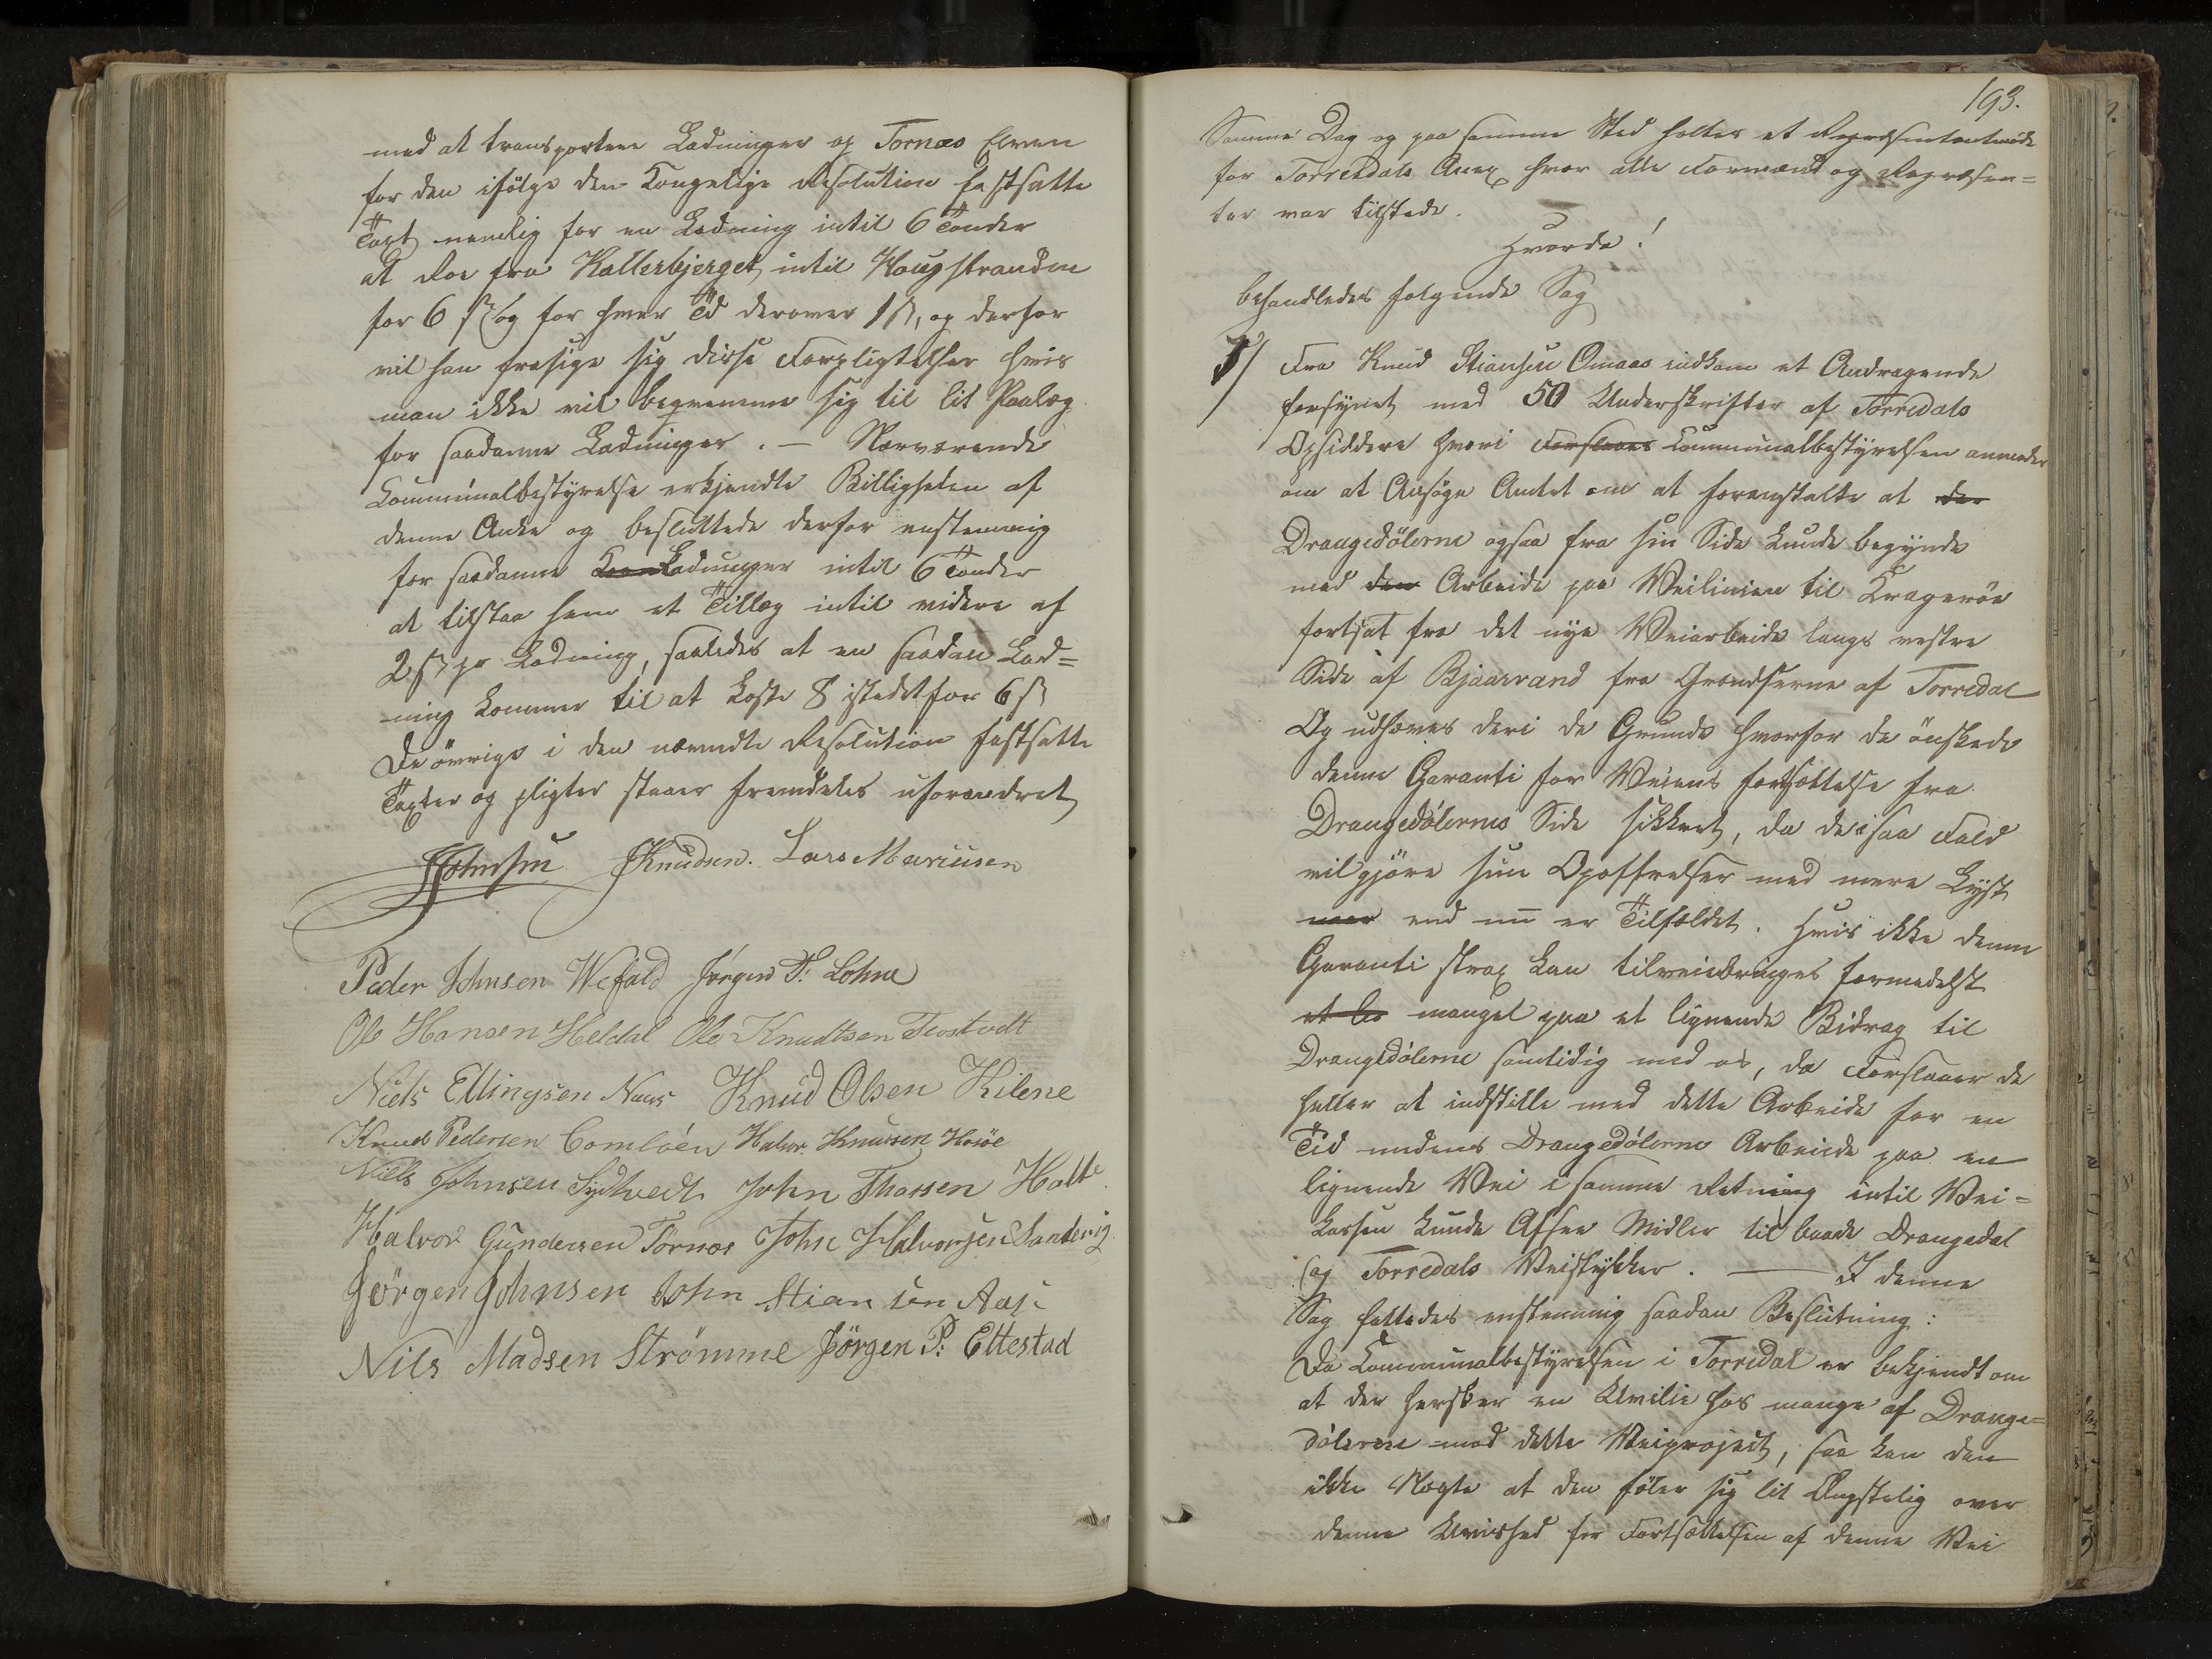 med at transportere Ladninger op Tornæs Elven
for den ifölge den Kongelige Resolution fastsatte
Taxt nemlig for en Ladning intil 6 Tönder
at Roe fra Kallerbjerget intil Haugstranden
for 6 ß og for hver Td derover 1 ß, og derfor
vil han frasige sig disse Forpligtelser hvis
man ikke vil beqvemme sig til lit Paalæg
for saadanne Ladninger. — Nærværende
Communalbestyrelse erkjendte Billigheden af
denne Anke og besluttede derfor enstemmig
for saadanne Ladninger intil 6 Tönder
at tilstaa ham et Tillæg intil videre af
2 ß pr Ladning, saaledes at en saadan Lad=
ning kommer til at koste 8 istedetfor 6 ß
De övrige i den nævndte Resolution fastsatte
Taxter og pligter staaer fremdeles uforandret
JJohnsen JKnudsen. Lars Mariusen
Peder Johnsen Wefald Jørgen T: Lohne
Ole Hansen Heldal Ole Knudtsen Trostvedt
Niels Ellingsen Naas Knud Olsen Kilene
Knud Pedersen Tomlöen Halvor Knudsen Hosöe
Niels Johnsen Sydtvedt John Thorsen Holte
Halvor Gundersen Törnæs John Halvorsen Sandvig
Jörgen Johnsen John Stiansen Aase
Nils Madsen Strömme Jörgen P: Ettestad
193.
Samme Dag og paa samme Sted holtes et Repræsentantmöde
for Torredals Anex hvor alle Formænd og Repræsen=
ter var tilstede.
Hvorda!
behandledes følgende Sag
1/ Fra Knud Stiansen Omaas indkom et Andragende
forsynet med 50 Underskrifter af Torredals
Opsiddere hvori Forslaaes Communalbestyrelsen anmodes
om at Ansöge Amtet om at foranstalte at der
Drangedölerne ogsaa fra sin Side kunde begynde
med den Arbeide paa Veilinien til Kragerøe
fortsat fra det nye Veiarbeide langs vestre
Side af Bjaarvand fra Grændserne af Torredal
Og udhæves deri de Grunde hvorfor de önskede
denne Garanti for Veiens fortsættelse fra
Drangedölernes Side sikkret, da de isaa Fald
vil gjöre sine Opoffrelser med mere Lyst
mer end nu er Tilfældet. Hvis ikke denne
Garanti strax kan tilveiebringes formedelst
et les mangel paa et lignende Bidrag til
Drangedölerne samtidig med os, da Forslaaer de
heller at indstille med dette Arbeide for en
Tid medens Drangedölerne Arbeide paa en
lignende Vei i samme Retning intil Vei=
kassen kunde Afsee Midler til baade Drangedal
og Torredals Veistykker. — I denne
Sag fattedes enstemmig saadan Beslutning:
Da Communalbestyrelsen i Torredal er bekjendt om
at der hersker en Uvilie hos mange af Drange=
dölerne mod dette Veiproject, saa kan den
ikke Nægte at den föler sig lit Ængstelig over
denne Uvished for Fortsættelsen af denne Vei